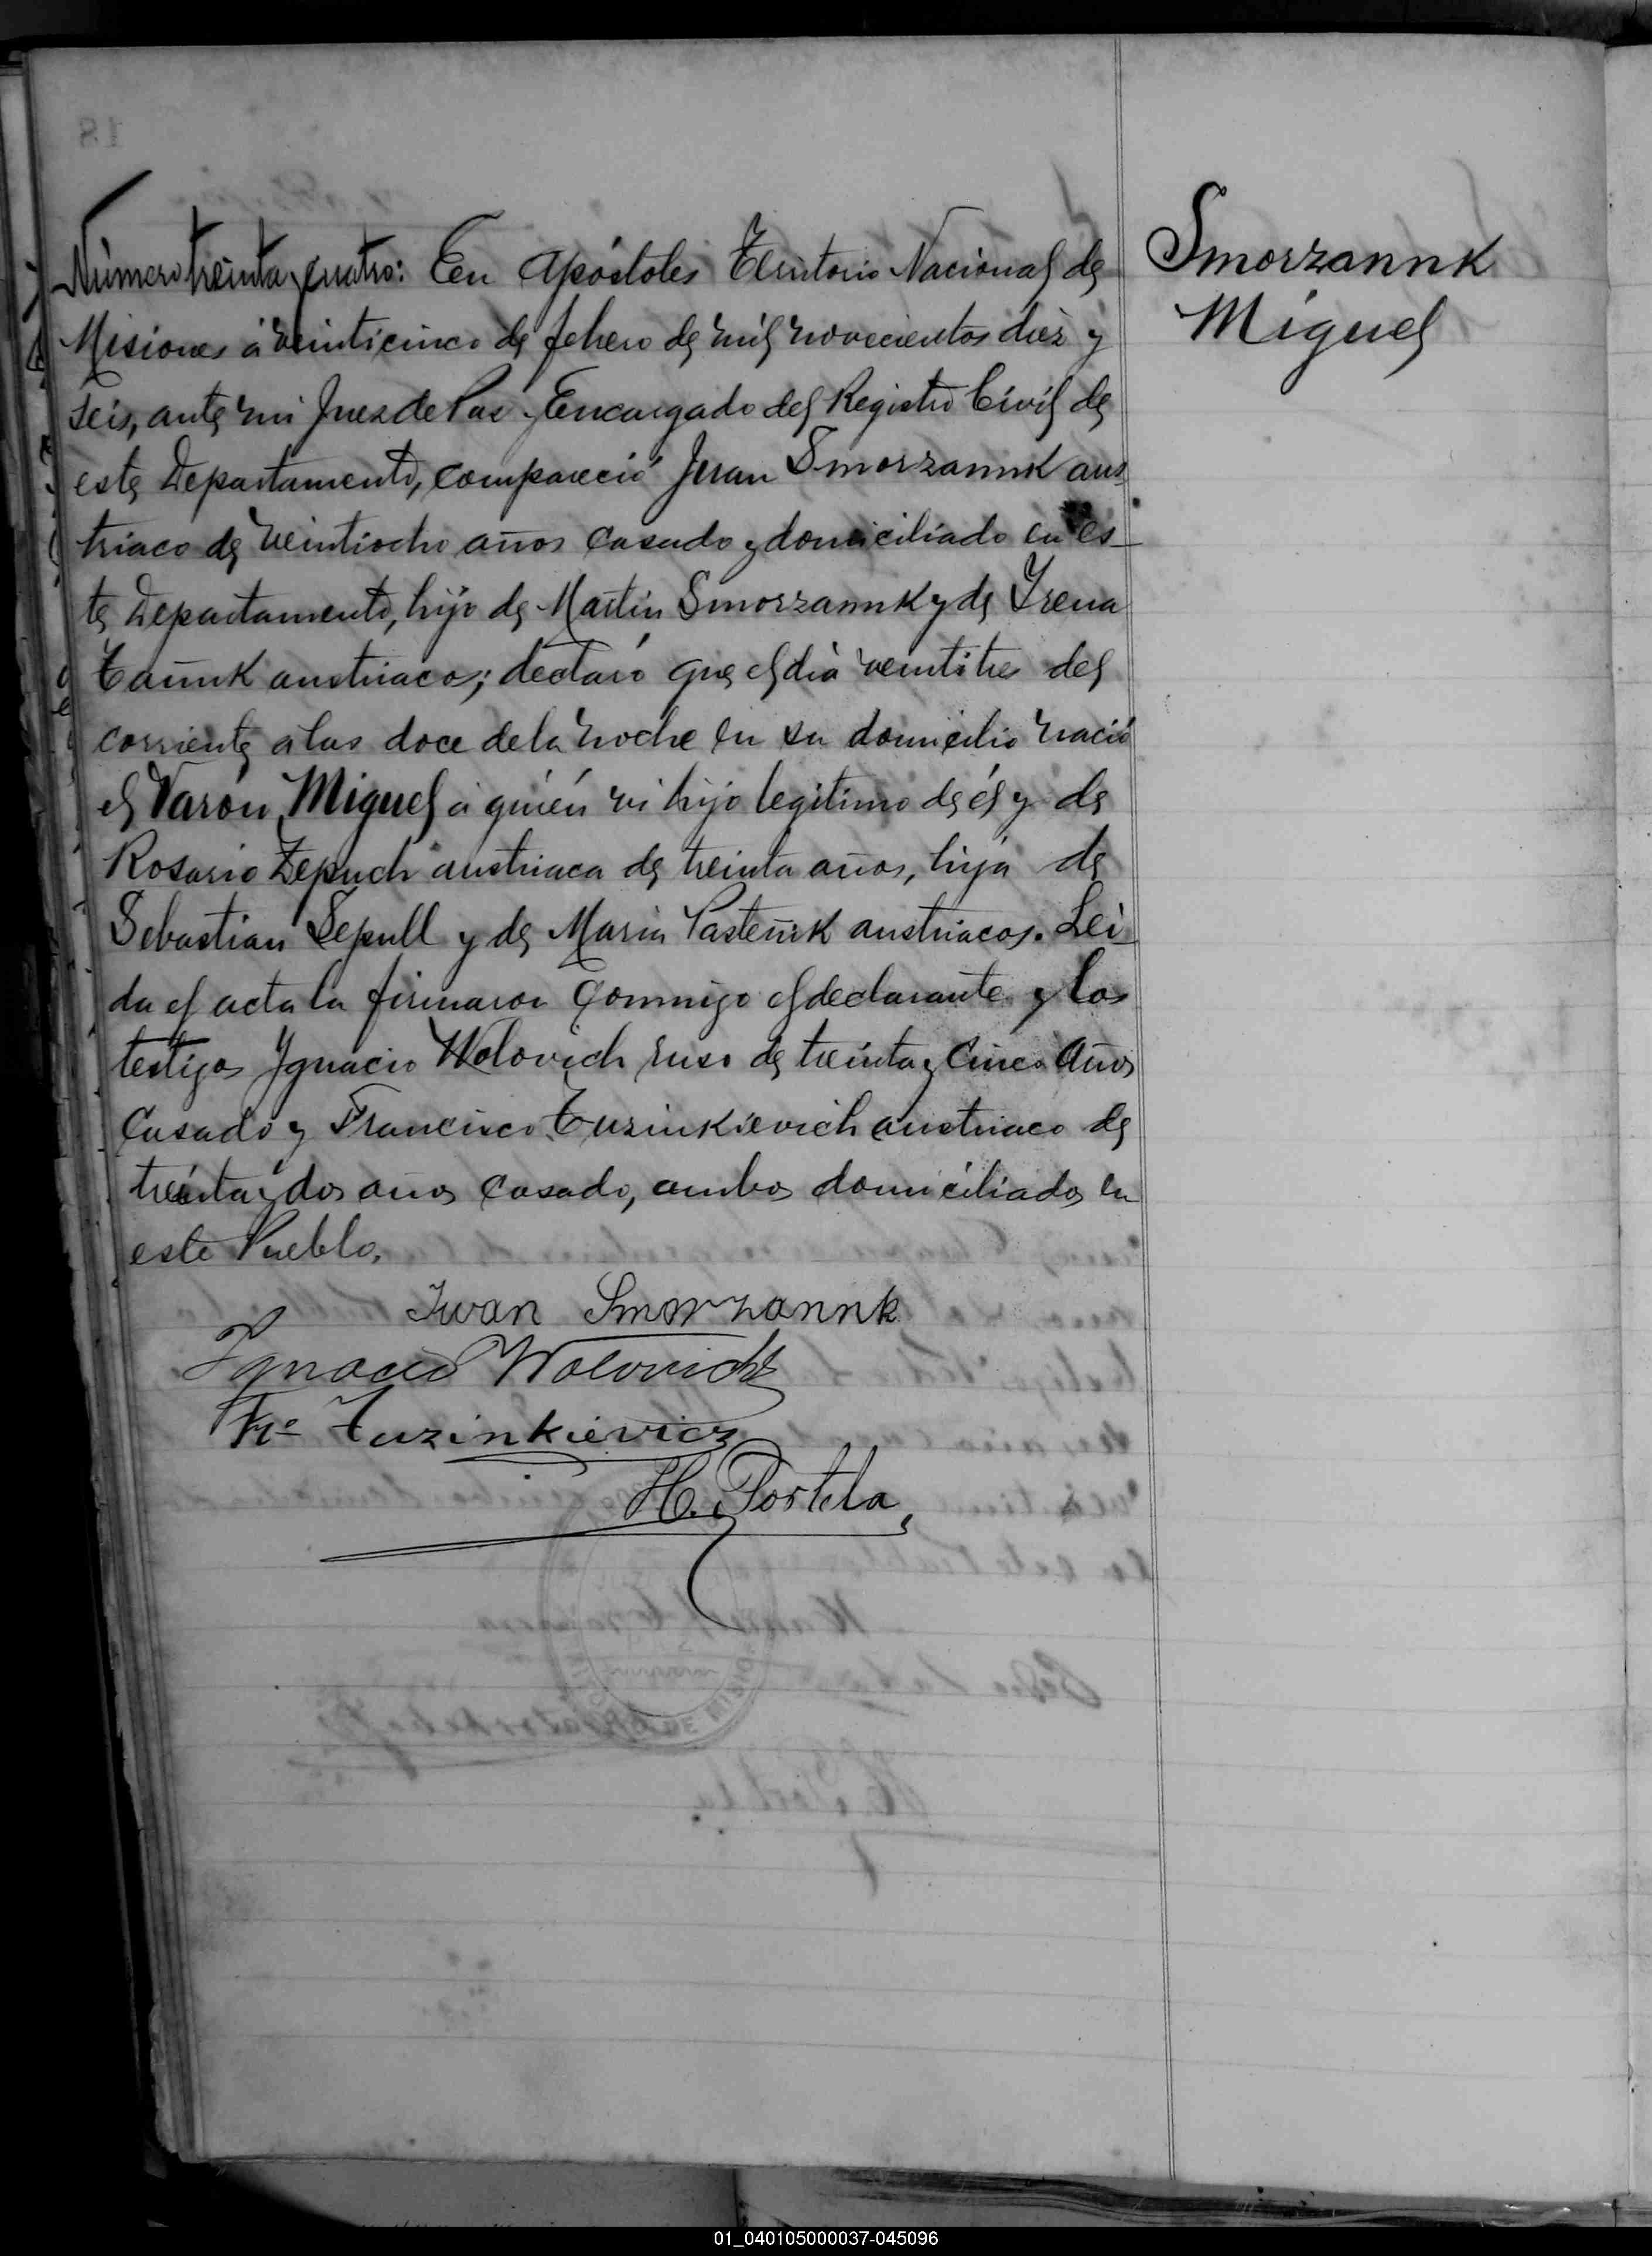 Número treinta y cuatro: En Apóstoles Territorio Nacional de
Misiones á veinticinco de febrero de mil novecientos diez y
seis, ante mi Juez de Paz y Encargado del Registro Civil de
este Departamento, compareció Juan Smorzannk aus
triaco de veintiocho años casado y domiciliado en es-
te Departamento, hijo de Martin Smorzannk y de Yrena
austriacos; declaró que el dia veintitres del
corriente a las doce de la noche en su domicilio nació
el Varón Miguel á quién vi hijo legitimo de él y de
Rosario Zepuch austriaca de treinta años, hija de
Sebastian Sepull y de Maria austriacos. Lei-
da el acta la firmaron conmigo el declarante y los
testigos Ygnacio Wolovich ruso de treinta y cinco años
casado y Francisco Tuzinkievich austriaco de
treinta y dos años casado, ambos domiciliados en
este Pueblo.
Iwan Smorzannk
Ygnacio Wolovich
Fco Tuzinkievicz
H. Portela
Smorzannk
Miguel
18
01_040105000037-045096